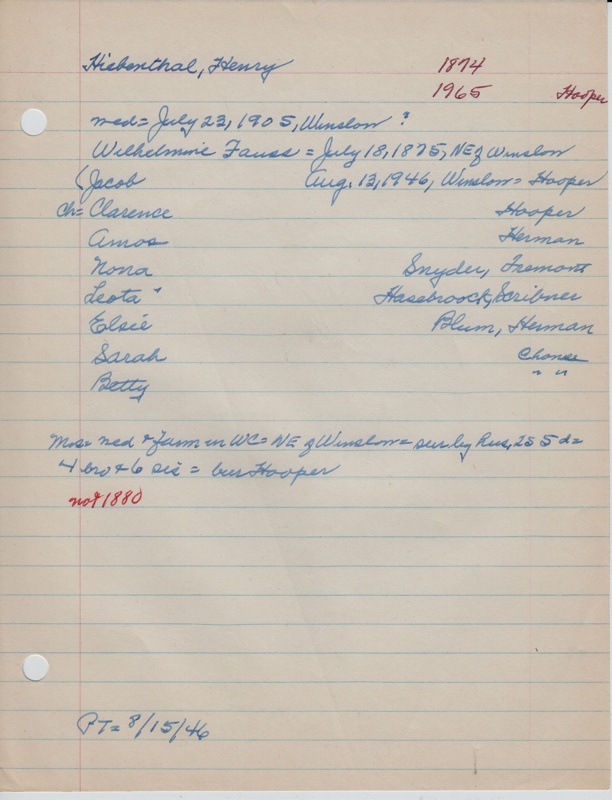 Hiebenthal, Henry 1874
1965 Hooper
med = July 23, 1905, Winslow ?
Wilhelmine Fauss = July 18, 1875, NE of Winslow
(Jacob Aug. 13, 1946, Winslow = Hooper
Ch = Clarence Hooper
Amos Herman
Nona Snyder, Fremont
Leota Hasebroock, Scribner
Elsie Blum, Herman
Sarah @home
Betty " "
Mos = med & farm in WC = NE of Winslow = sur by hus, 2s 5d =
4 bro & 6 sis = bur Hooper
not 1880
PT = 8/15/46